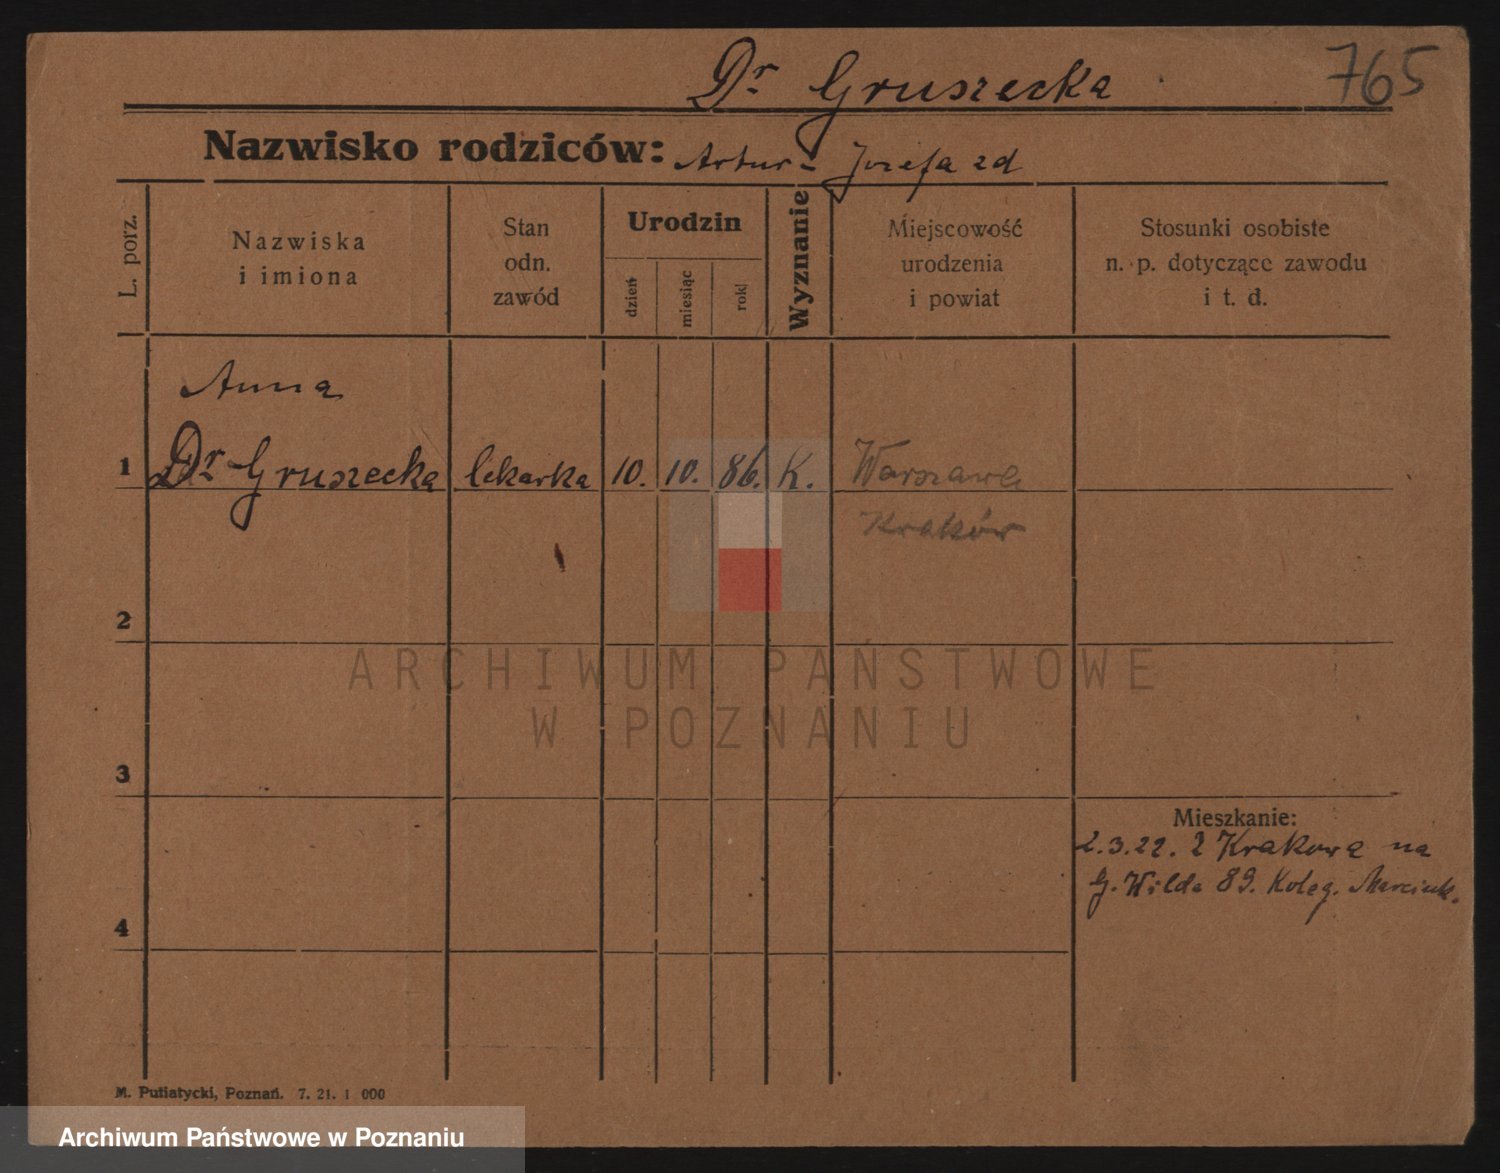 Dr Gruszecka
765
Nazwisko rodziców: Artur - Józefa zd
L. porz.
Nazwiska
i imiona
Stan
odn.
zawód
Urodzin
dzień
miesiąc
rok
Wyznanie
Miejscowość
urodzenia
i powiat
Stosunki osobiste
n. p. dotyczące zawodu
i t. d.
Anna
1 Dr Gruszecka lekarka 10. 10. 86. K. Warszawa
Kraków
2
ARCHIWUM PAŃSTWOWE
W POZNANIU
3
Mieszkanie:
2.3.22. z Krakowa na
G. Wilda 89. Koleg. Marcink.
4
M. Putiatycki, Poznań. 7. 21. 1 000
Archiwum Państwowe w Poznaniu